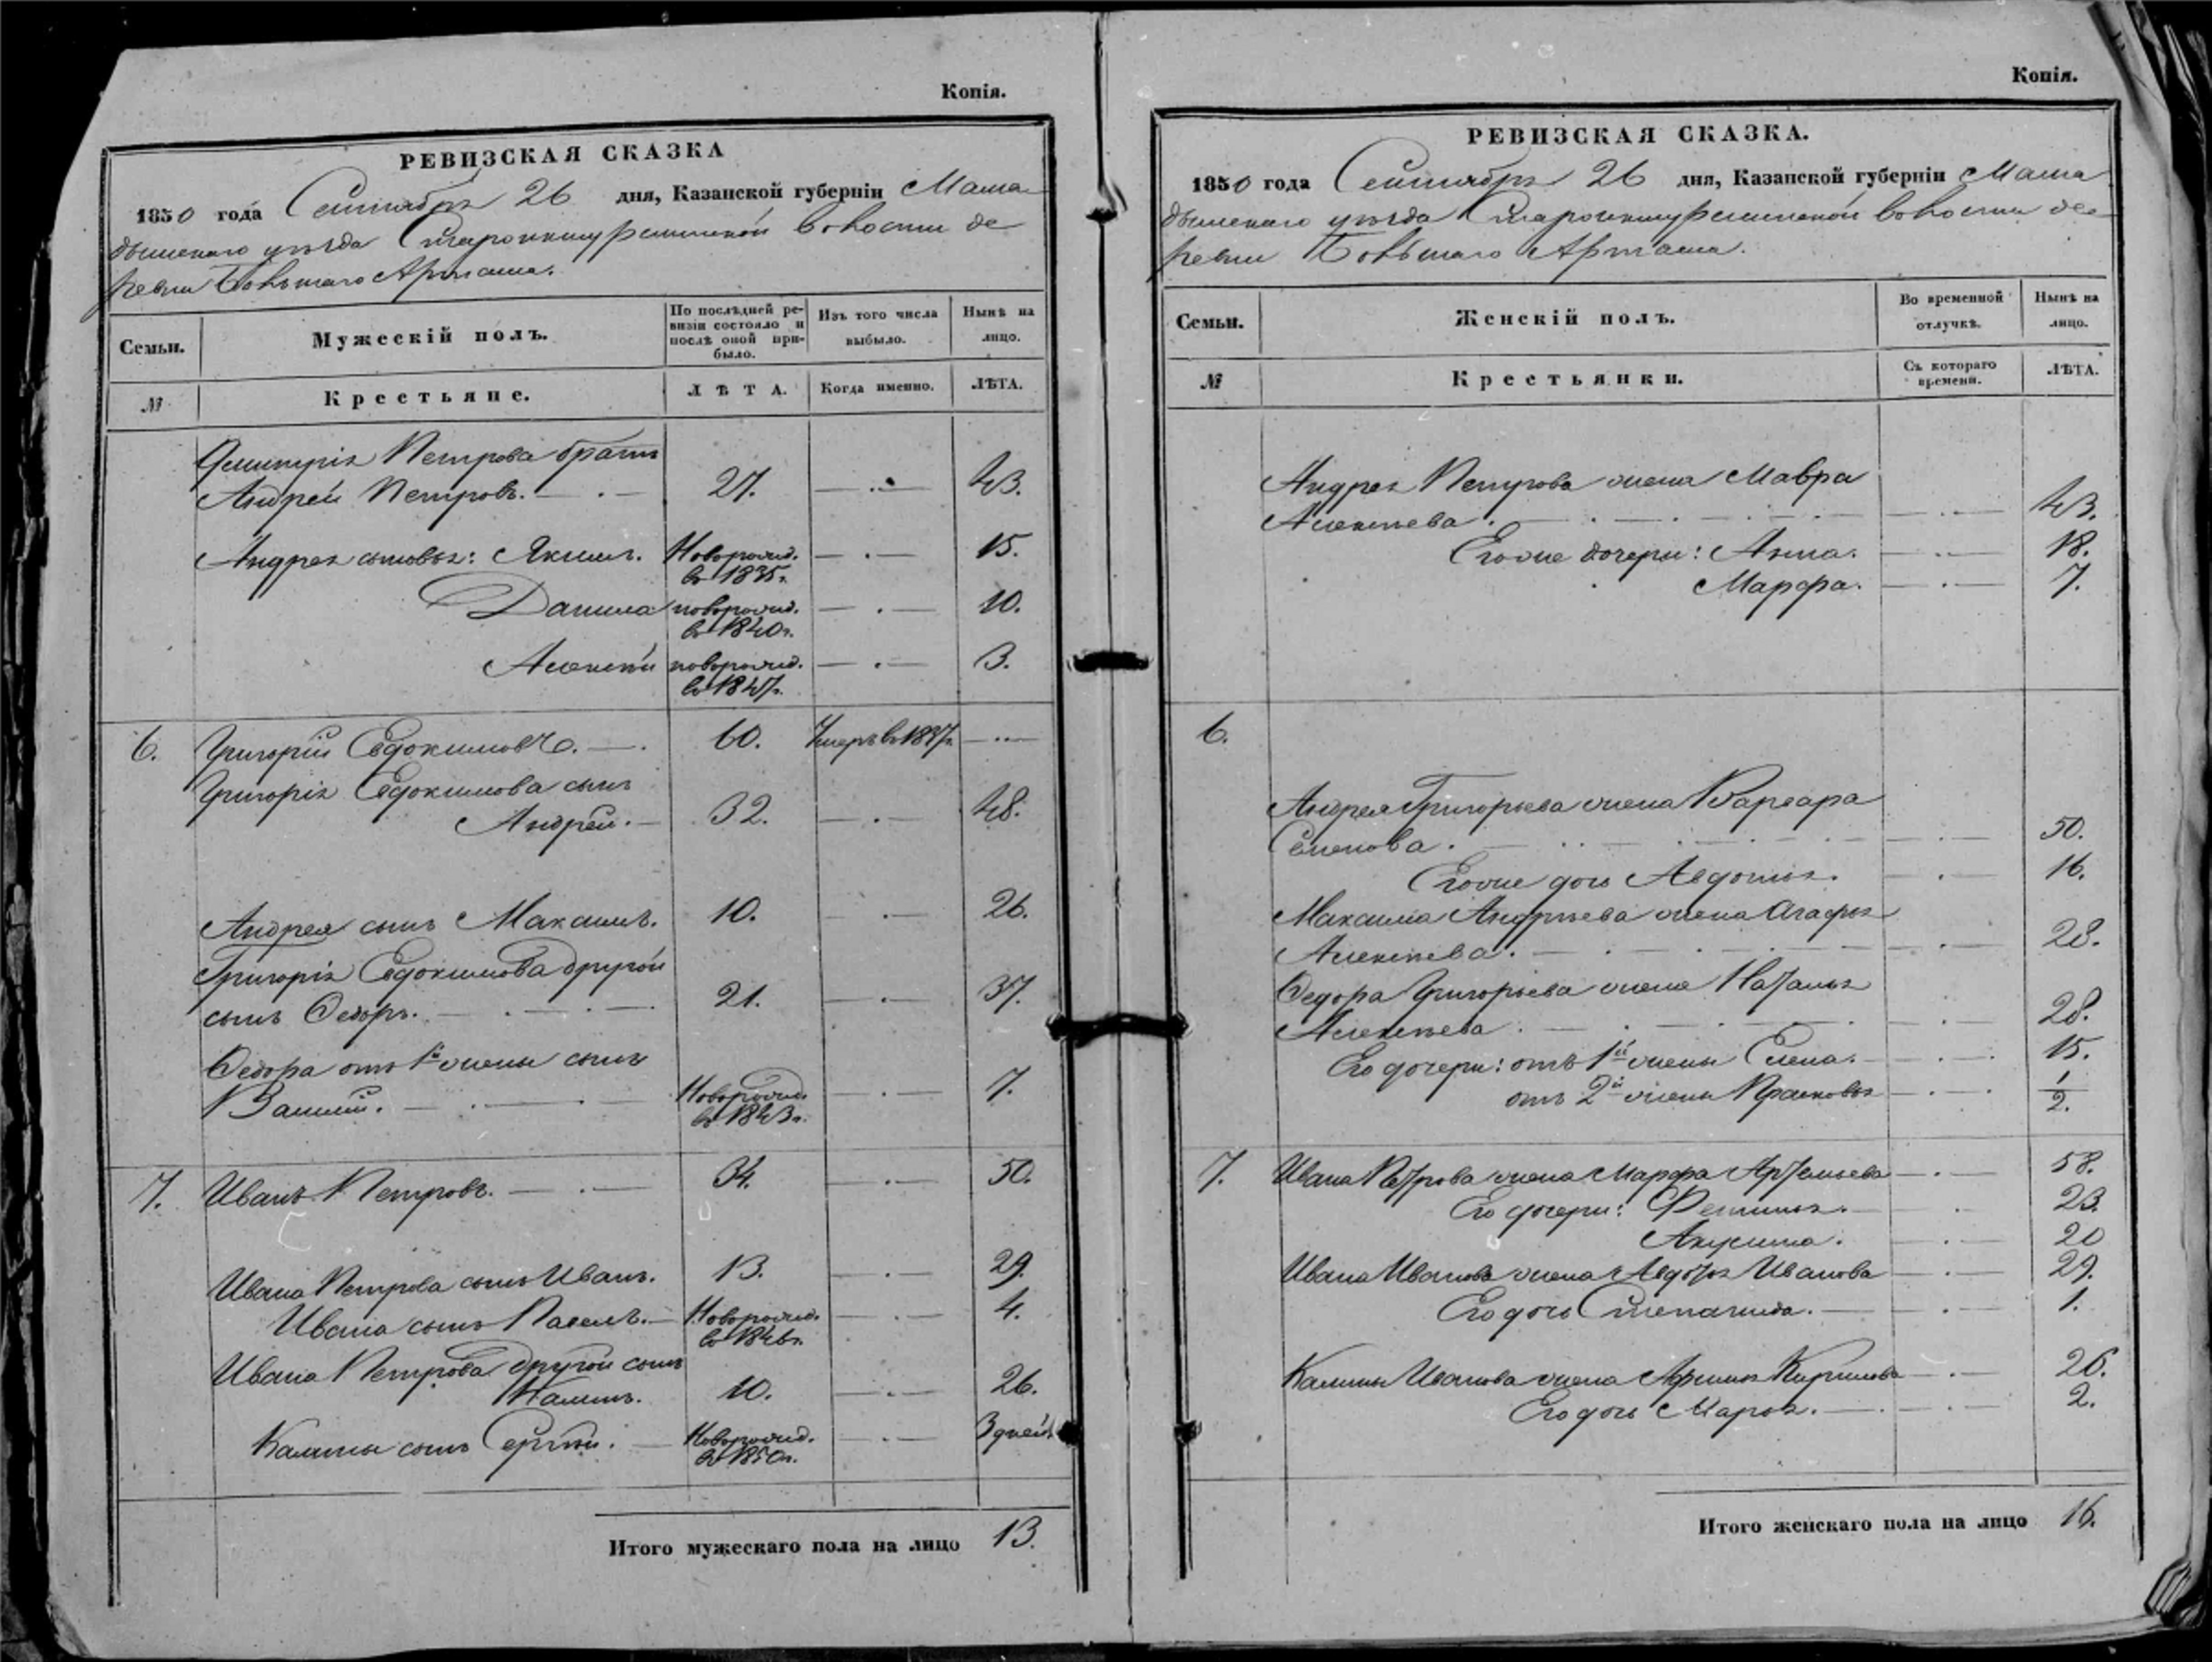 Копія.
РЕВИЗСКАЯ СКАЗКА
1850 года Сентября 26 дня, Казанской губерніи Мама-
дышскаго уѣзда волости де-
ревни Большаго Арташа.
Семьи.
Мужескій полъ.
По послѣдней ре-
визіи состояло и
послѣ оной при-
было.
Изъ того числа
выбыло.
Нынѣ на
лицо.
№
Крестьяне.
ЛѢТА.
Когда именно.
ЛѢТА.
Дмитрія Петрова братъ
Андрей Петровъ. 27. 43.
Андрея сыновья: Якимъ. Новорожд. 15.
в 1835г.
Данила новорожд. 10.
в 1840г.
Алексѣй новорожд. 3.
в 1847г.
6. Григорій Евдокимовъ. 60. Умеръ в 1837г.
Григорія Евдокимова сынъ
Андрей. 32. 48.
Андрея сынъ Максимъ. 10. 26.
Григорія Евдокимова другой
сынъ Ѳедоръ. 21. 37.
Ѳедора отъ 1й жены сынъ
Василій. Новорожд. 7.
в 1843г.
7. Иванъ Петровъ. 34. 50.
Ивана Петрова сынъ Иванъ. 13. 29.
Ивана сынъ Павелъ. Новорожд. 4.
в 1846г.
Ивана Петрова другой сынъ
Калинъ. 10. 26.
Калины сынъ Сергѣй. Новорожд. 3 дней.
в 1850г.
Итого мужескаго пола на лицо 13.
Копія.
РЕВИЗСКАЯ СКАЗКА.
1850 года Сентября 26 дня, Казанской губерніи Мама
дышскаго уѣзда волости де-
ревни Большаго Арташа.
Семьи.
Женскій полъ.
Во временной
отлучкѣ.
Нынѣ на
лицо.
№
Крестьянки.
Съ котораго
времени.
ЛѢТА.
Андрея Петрова жена Мавра
Алексѣева. 43.
Егоже дочери: Анна. 18.
Марфа. 7.
6.
Андрея Григорьева жена Варвара
Семенова. 50.
Егоже дочь Авдотья. 16.
Максима Андрѣева жена Агафья
Алексѣева. 28.
Ѳедора Григорьева жена Наталья
Алексѣева. 28.
Его дочери: отъ 1й жены Елена. 15.
отъ 2й жены Прасковья 1/2.
7. Ивана Петрова жена Марфа Артемьева 58.
Его дочери: 23.
Акулина. 20
Ивана Иванова жена Авдотья Иванова 29.
Его дочь Степанида. 1.
Калины Иванова жена Кирилова 26.
Его дочь Марья. 2.
Итого женскаго пола на лицо 16.